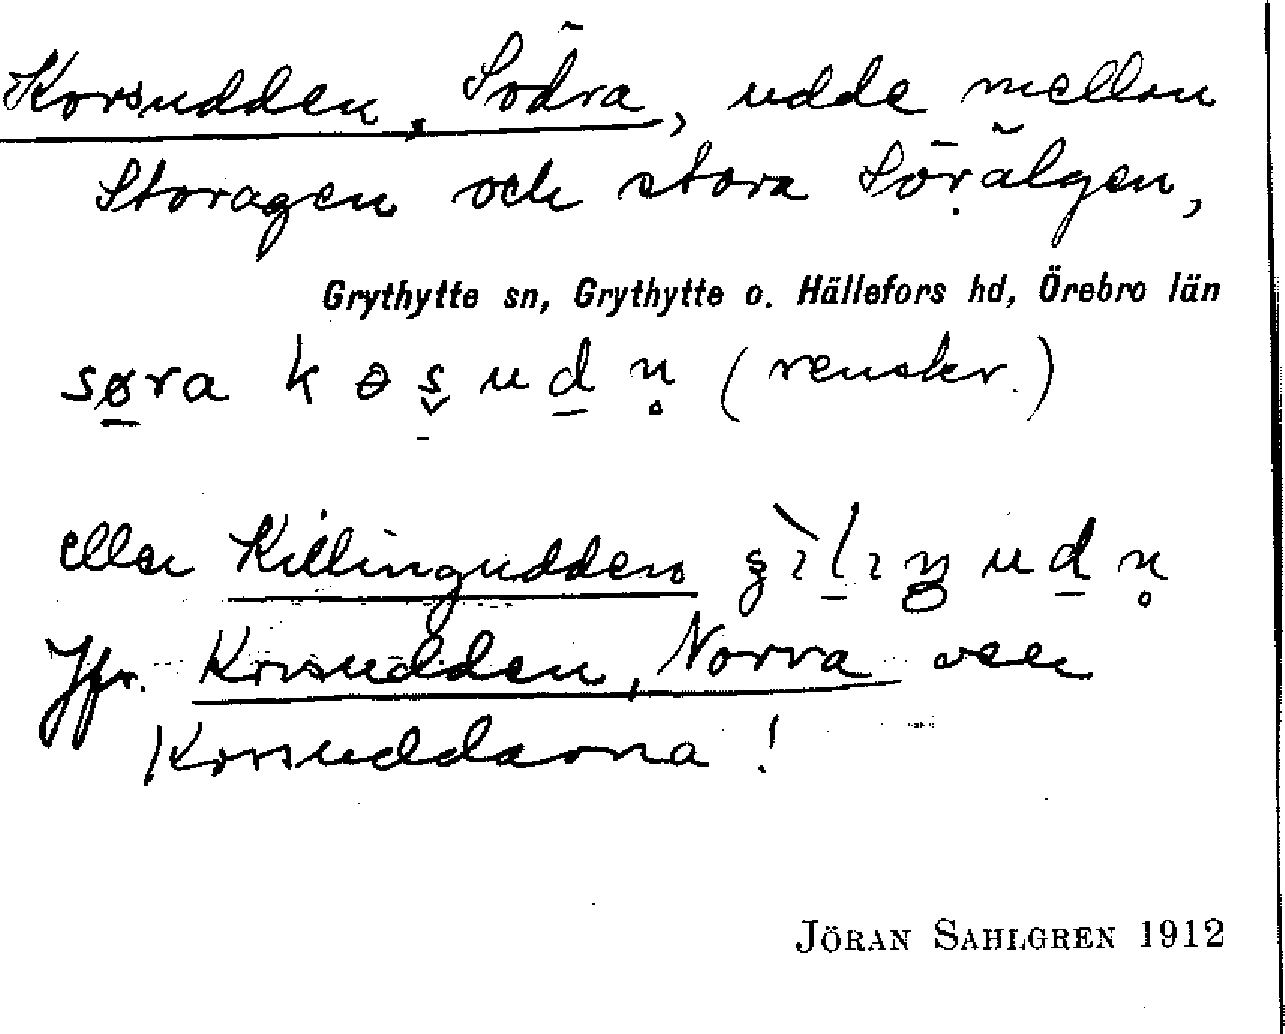 Korsudden, Södra, udde mellan
Storagen och stora Sörälgen,
Grythytte sn, Grythytte o. Hällefors hd, Örebro län
søra kɵsudn̥ (renskr.)
eller Killingudden
Jfr. Korsudden, Norra och
Korsuddarna!
JÖRAN SAHLGREN 1912